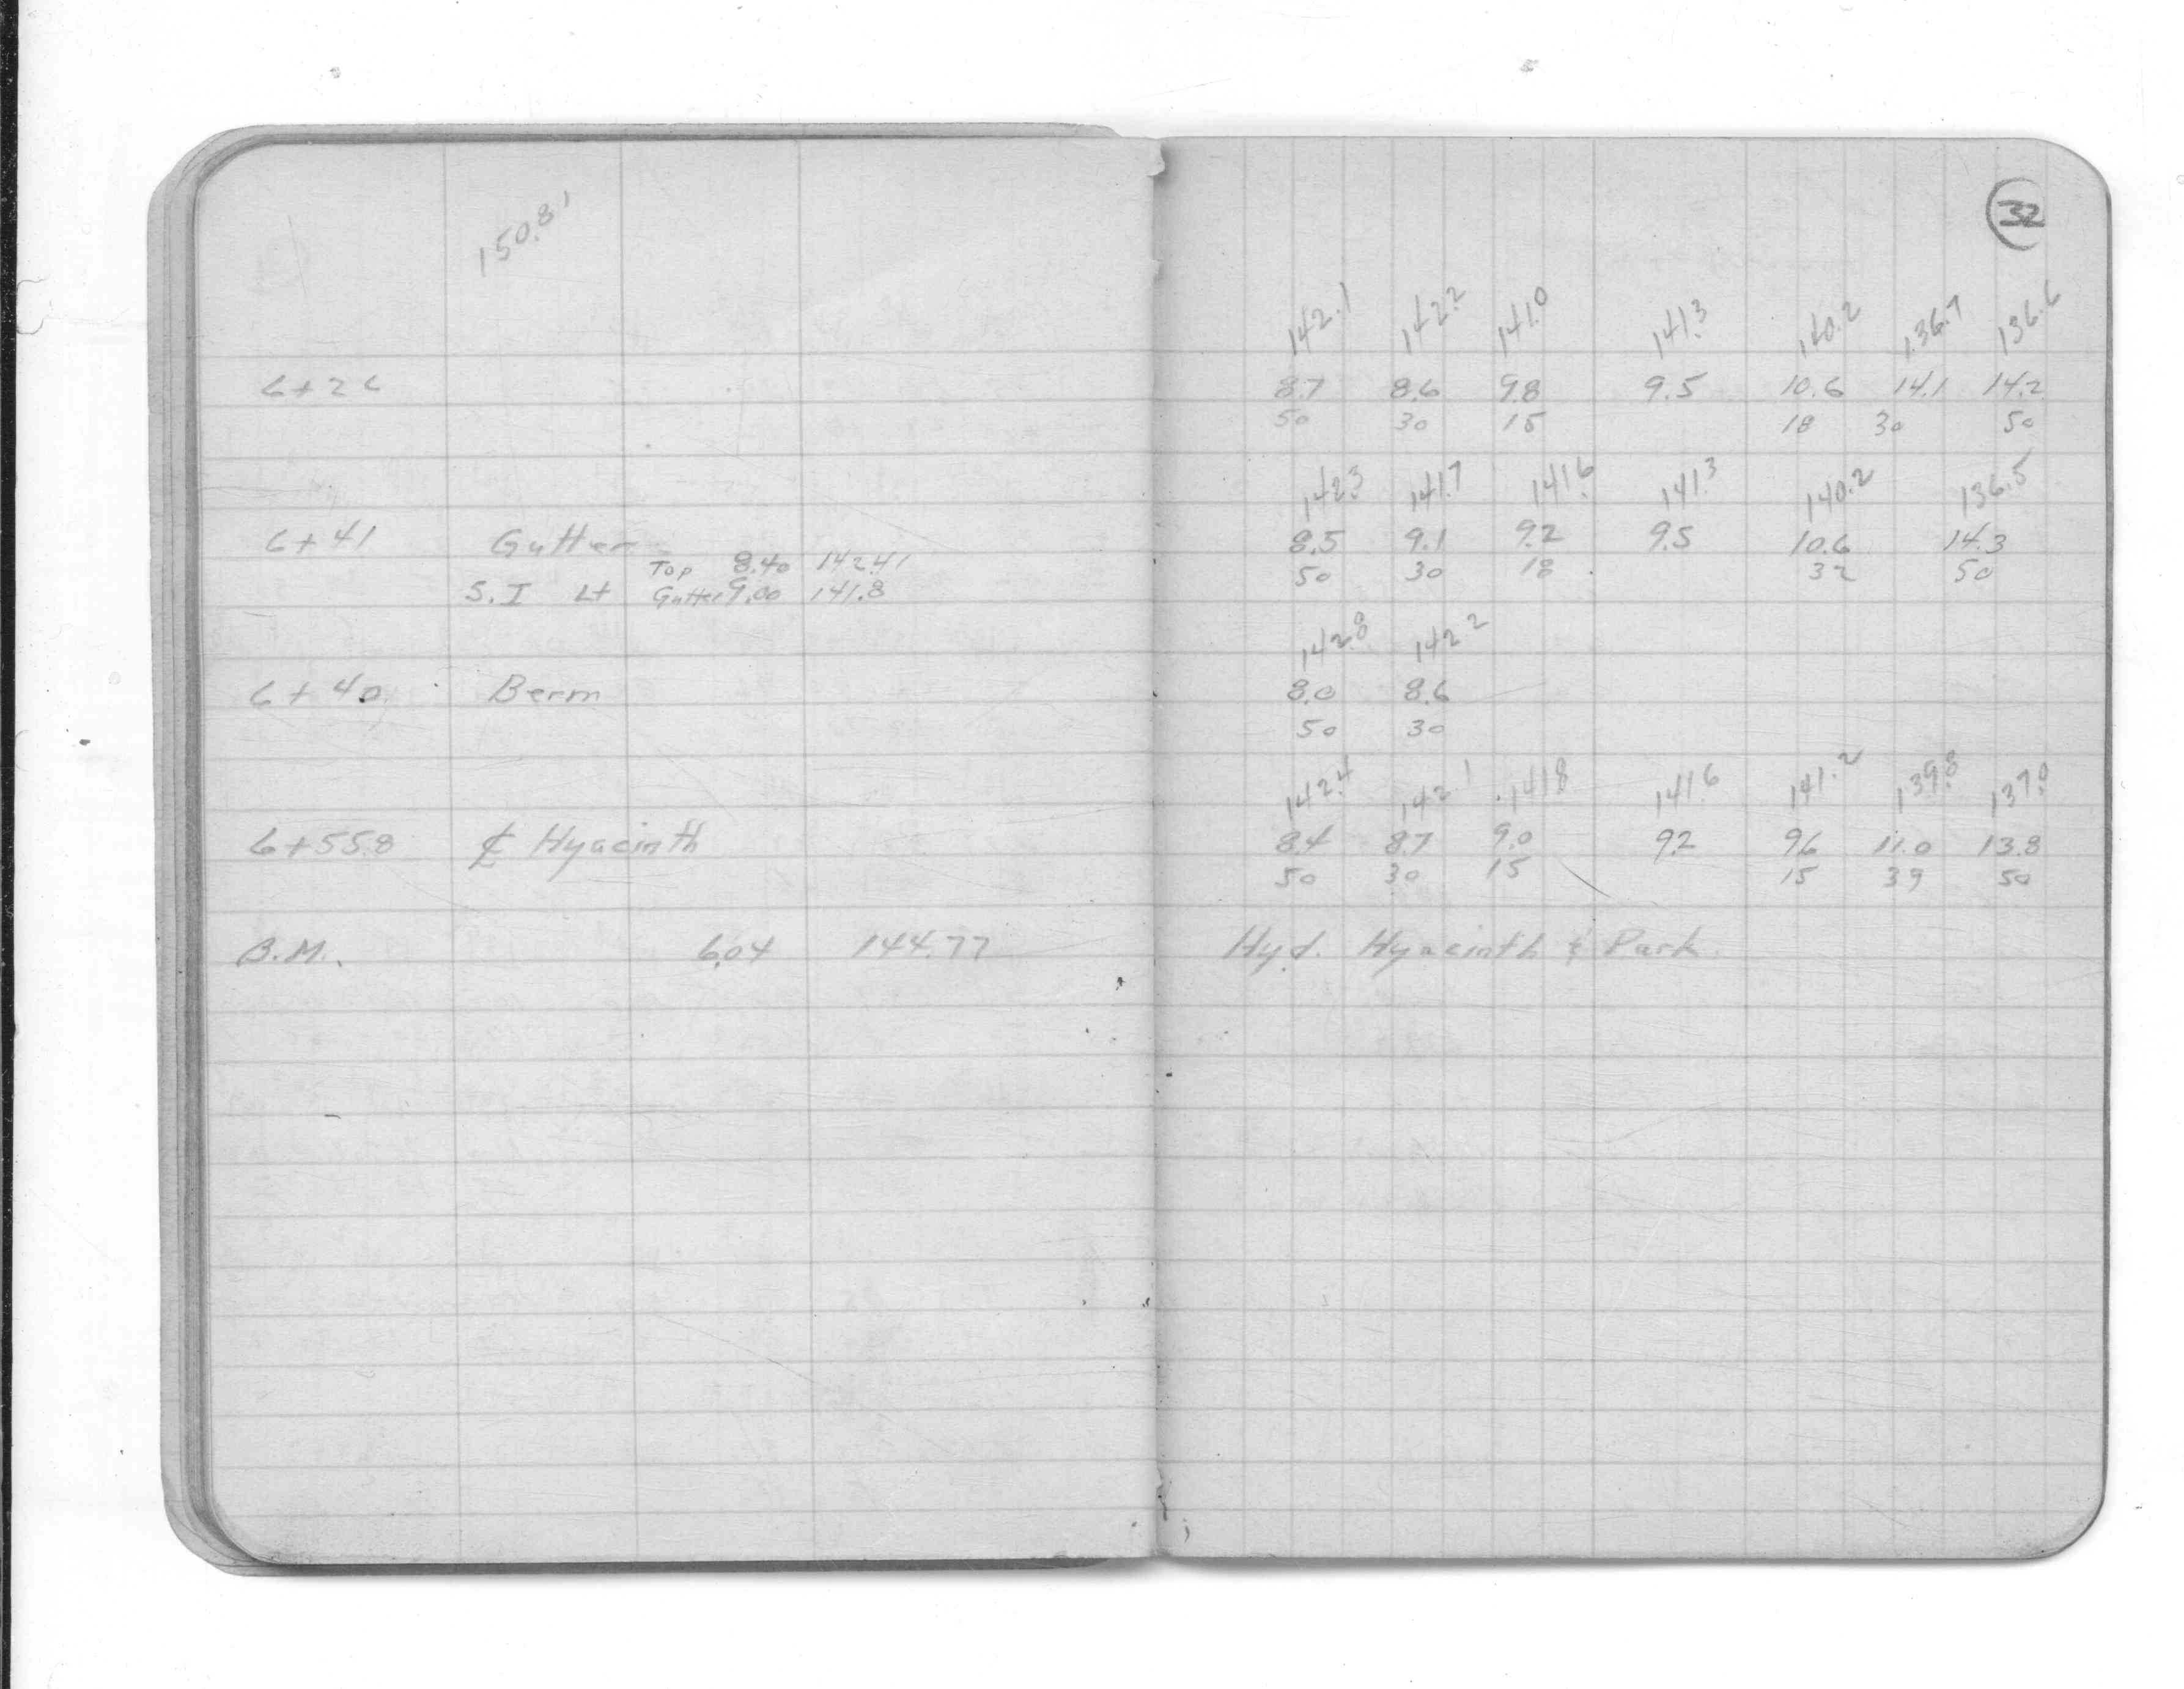 32
150.81
142.1 142.2 141.0 141.3 140.2 136.7 136.6
6+26 8.7 8.6 9.8 9.5 10.6 14.1 14.2
50 30 15 18 30 50
142.3 141.7 141.6 141.3 140.2 136.5
6+41 Gutter 8.5 9.1 9.2 9.5 10.6 14.3
Top 8.40 142.41 50 30 18 32 50
S.I Lt Gutter 9.00 141.8
142.8 142.2
6+40 Berm 8.0 8.6
50 30
142.4 142.1 141.8 141.6 141.2 139.8 137.0
6+55.8 ℄ Hyacinth 8.4 8.7 9.0 9.2 9.6 11.0 13.8
50 30 15 15 39 50
B.M. 6.04 144.77 Hyd. Hyacinth & Park